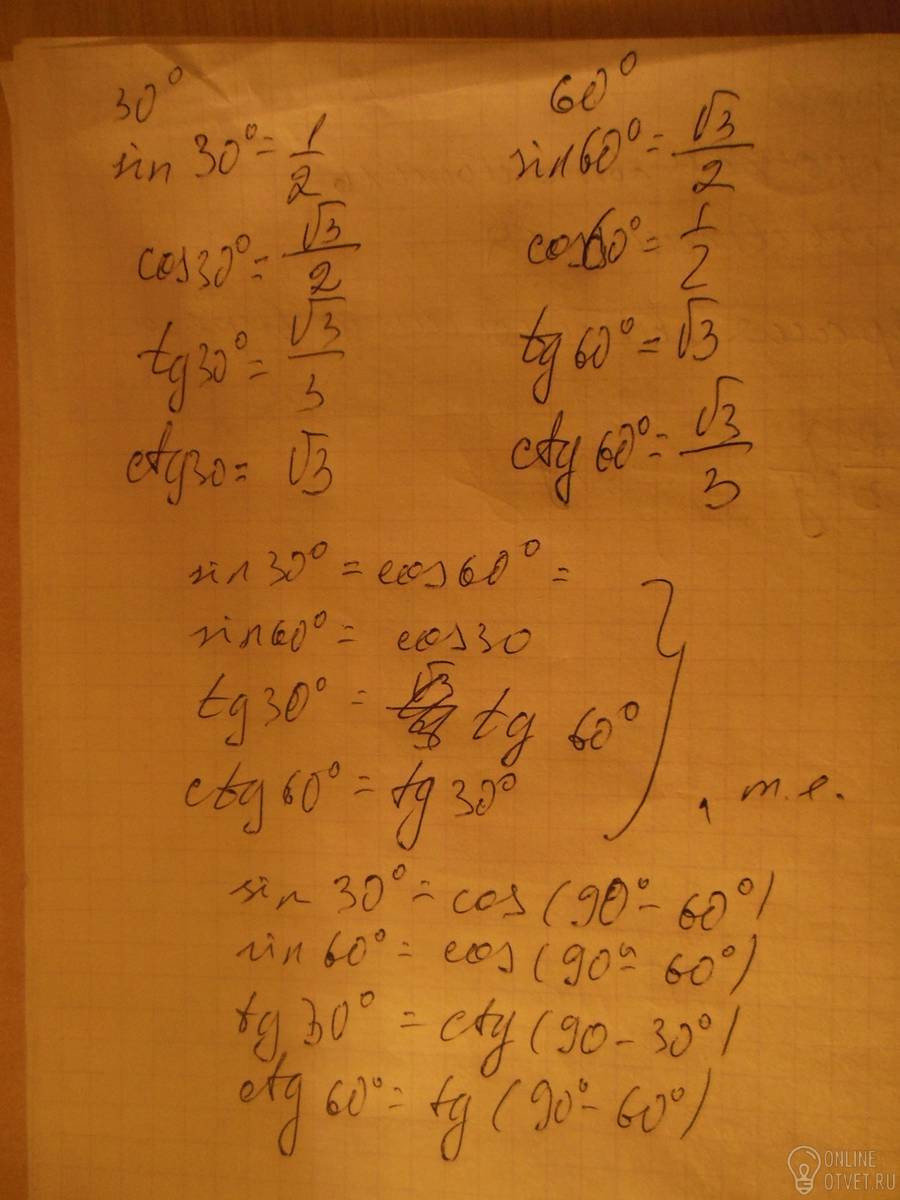 30° 60°
sin 30° = 1/2 sin 60° = √3/2
cos 30° = √3/2 cos 60° = 1/2
tg 30° = √3/3 tg 60° = √3
ctg 30 = √3 ctg 60° = √3/3
sin 30° = cos 60° =
sin 60° = cos 30
tg 30° = tg 60°
ctg 60° = tg 30°
, т.е.
sin 30° = cos (90° - 60°)
sin 60° = cos (90° - 60°)
tg 30° = ctg (90 - 30°)
ctg 60° = tg (90° - 60°)
ONLINE
OTVET.RU